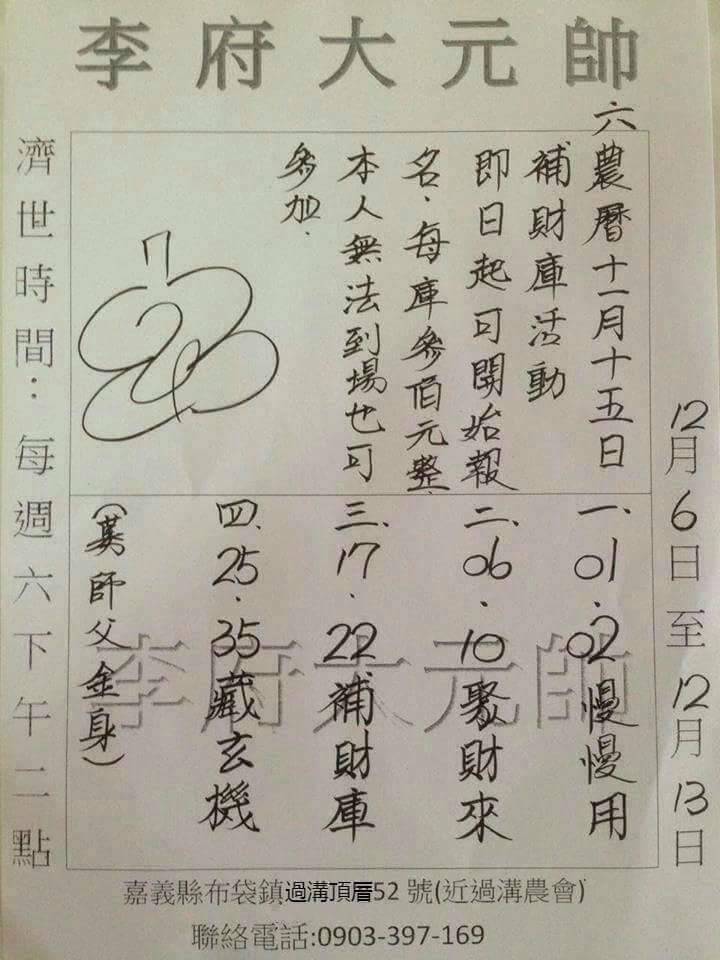 李府大元帥
12月6日至12月13日
六農曆十一月十五日
補財庫活動
即日起可開始報
名．每庫參佰元整．
本人無法到場也可
參加．
一、01．02慢慢用
二、06．10聚財來
三、17．22補財庫
四、25．35藏玄機
李府大元帥
濟世時間：每週六下午二點
嘉義縣布袋鎮過溝頂厝52 號(近過溝農會)
聯絡電話:0903-397-169